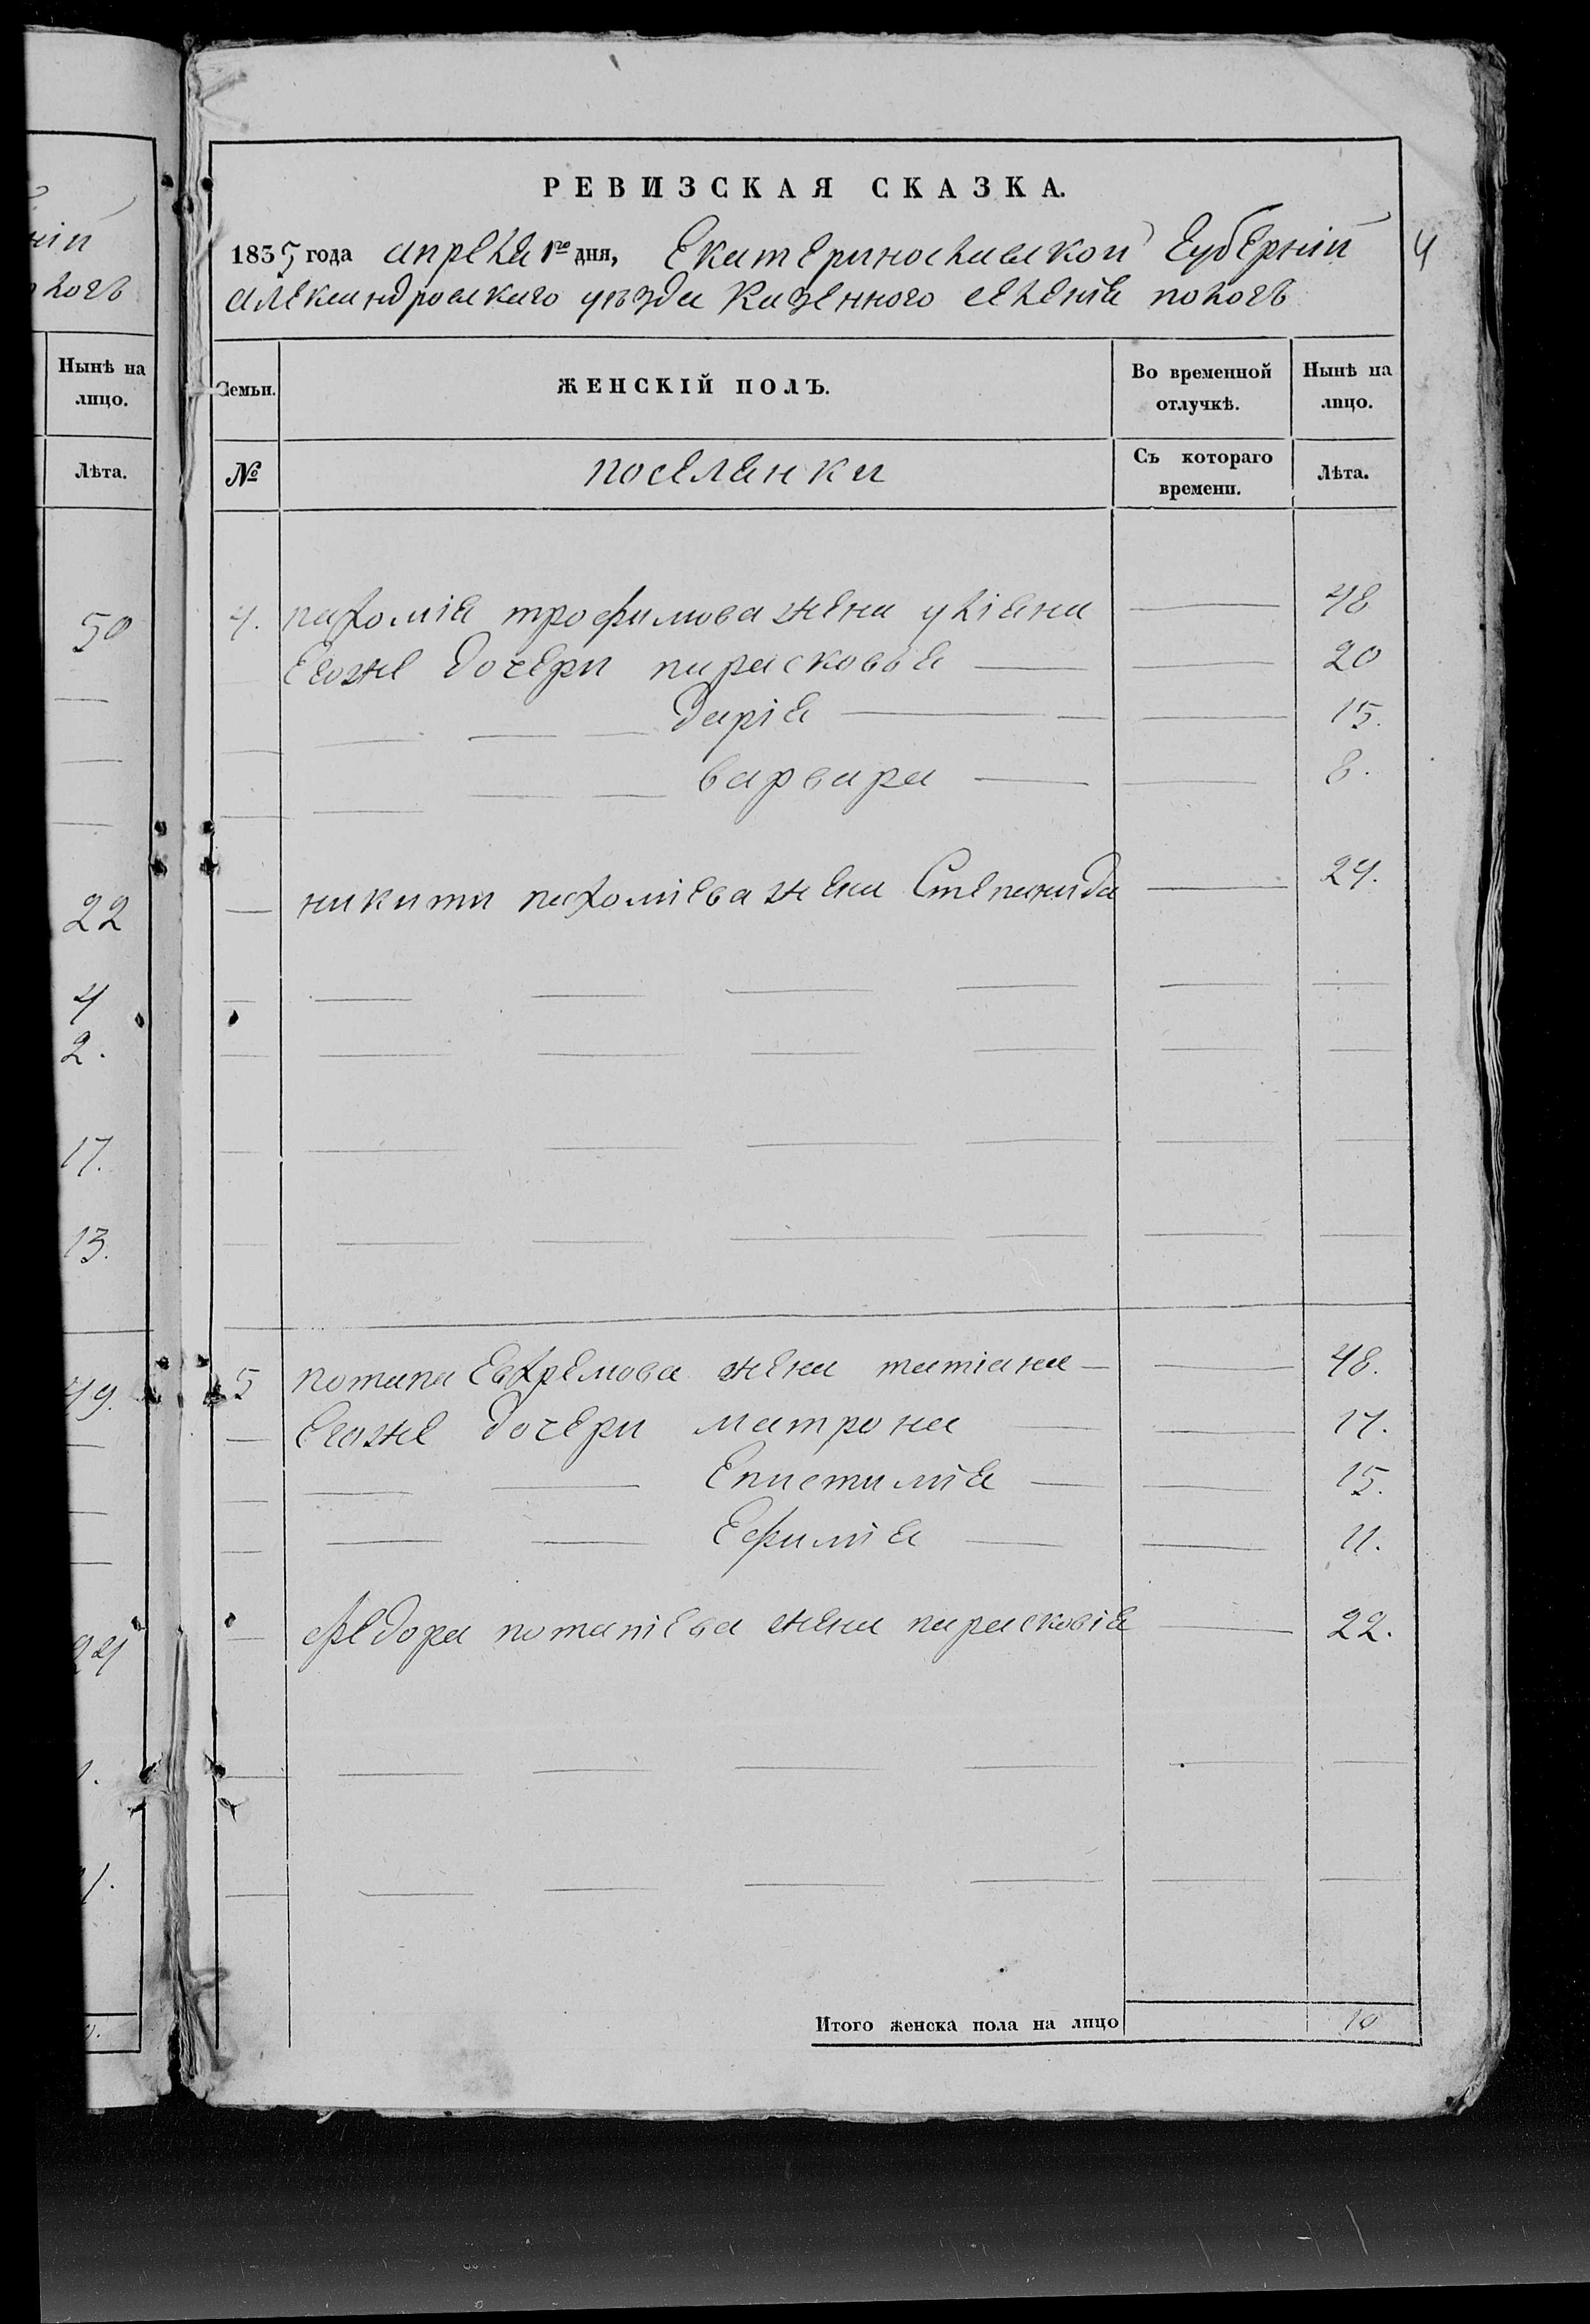 ній
логъ
Нынѣ на
лицо.
Лѣта.
50
22
4
2.
17.
13.
49.
24
РЕВИЗСКАЯ СКАЗКА.
1835 года апреля 1го дня, Екатеринославской Губерніи
4
александровскаго уѣзда казенного селенія пологъ
Семьи.
ЖЕНСКІЙ ПОЛЪ.
Во временной
отлучкѣ.
Нынѣ на
лицо.
№
поселянки
Съ котораго
времени.
Лѣта.
4. пахомія трофимова жена уліяна 48
Егоже дочери парасковья 20
дарія 15.
варвара 8.
никити пахоміева жена Степанида 24.
5 потапа Евхремова жена татіана 48.
Егоже дочери матрона 17.
Епистимія 15.
Ефимія 11.
федора потапіева жена парасковія 22.
Итого женска пола на лицо 10